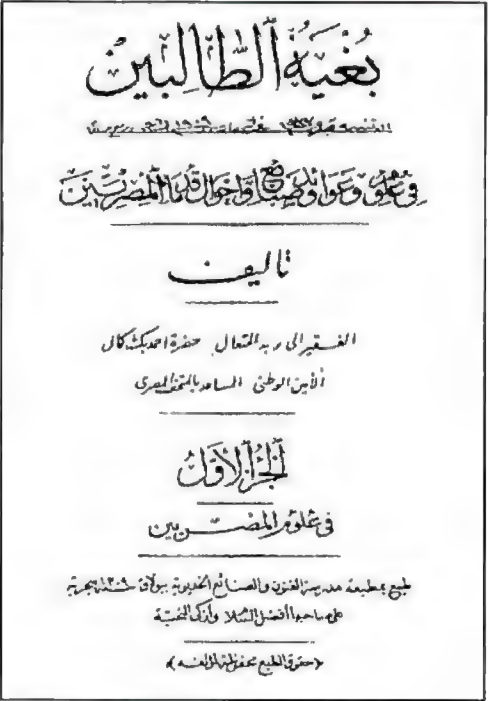 بُغْيَةُ الطَّالِبِينَ
فِي عُلُومِ وَعَوَائِدِ وَصَنَائِعِ وَأَحْوَالِ قُدَمَاءِ الْمِصْرِيِّينَ
تأليف
الفقير الى ربه المتعال حضرة احمد بك كمال
الأمين الوطنى المساعد بالمتحف المصرى
الجُزْءُ الأَوَّلُ
فى عُلُومِ المِصْرِيِّينَ
طبع بمطبعة مدرسة الفنون والصنائع الخديوية ببولاق سنة ١٣٠٩ هجرية
على صاحبها أفضل الصلاة وأذكى التحية
﴿حقوق الطبع محفوظة لمؤلفه﴾